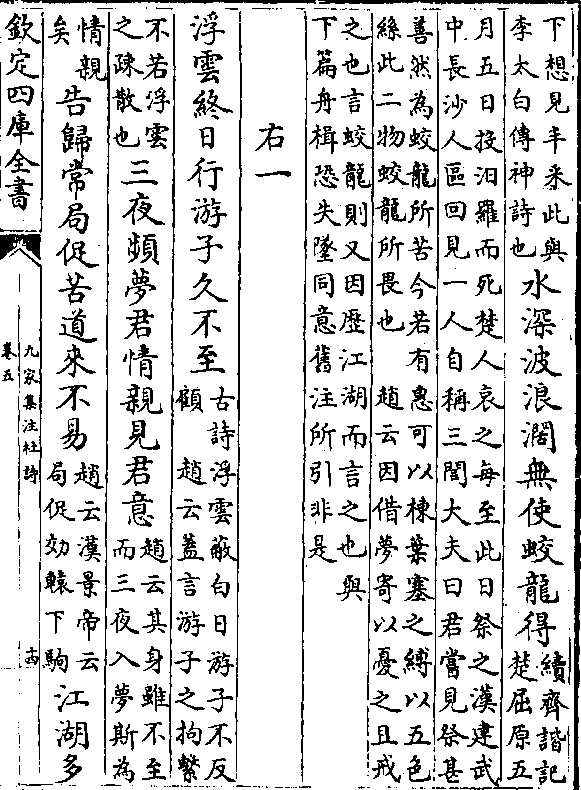 下想見丰采此與
李太白傳神詩也
水深波浪濶無使蛟龍得
續齊諧記
楚屈原五
月五日投汨羅而死楚人哀之每至此日祭之漢建武
中長沙人區回見一人自稱三閭大夫曰君當見祭甚
善然為蛟龍所苦今若有惠可以楝葉塞之縛以五色
絲此二物蛟龍所畏也 趙云因借夢寄以憂之且戒
之也言蛟龍則又因歷江湖而言之也與
下篇舟楫恐失墜同意舊注所引非是
右一
浮雲終日行游子久不至
古詩浮雲蔽白日游子不反
顧 趙云蓋言游子之拘繫
不若浮雲
之疎散也
三夜頻夢君情親見君意
趙云其身雖不至
而三夜入夢斯為
情親
矣
告歸常局促苦道來不易
趙云漢景帝云
局促効轅下駒
江湖多
欽定四庫全書
九家集注杜詩
卷五
十四